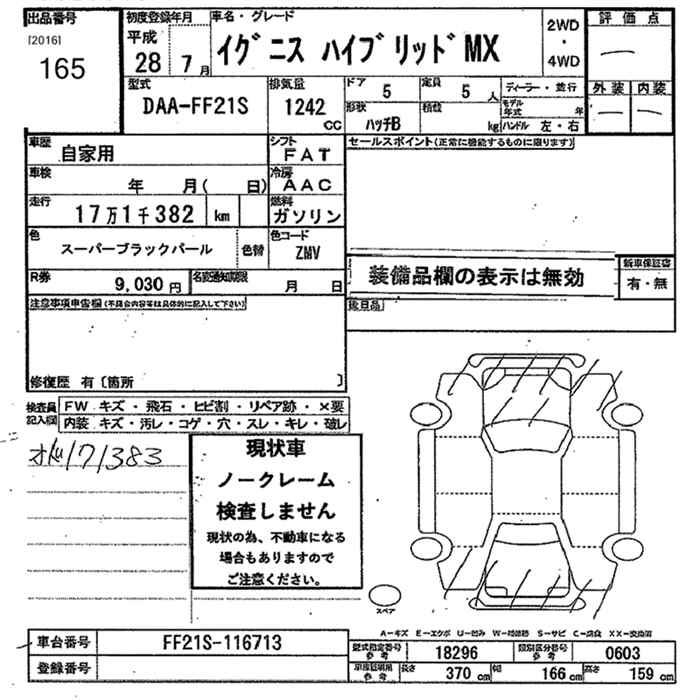 出品番号 初度登録年月 車名・グレード 2WD ・ 4WD 評価点
[2016]
165
平成 28 年 7月 イグニス ハイブリッドMX
型式 排気量 ドア 定員 ディーラー・並行 外装 内装
DAA-FF21S 1242 CC 5 5 人 モデル年式 年
形状 ハッチB 積載 kg ハンドル 左・右
車歴 自家用 シフト FAT セールスポイント(正常に機能するものに限ります)
車検 年 月( 日) 冷房 AAC
走行 17万1千382 km 燃料 ガソリン
色 スーパーブラックパール 色替 色コード ZMV
装備品欄の表示は無効 新車保証書 有・無
R券 9,030円 名変通知期限 月 日
注意事項申告欄(不具合内容等は具体的に記入して下さい)
修復歴 有〔箇所 〕
検査員記入欄 FW キズ・飛石・ヒビ割・リペア跡・×要
内装 キズ・汚レ・コゲ・穴・スレ・キレ・破レ
171383
現状車
ノークレーム
検査しません
現状の為、不動車になる
場合もありますので
ご注意ください。
スペア
A-キズ E-エクボ U-凹み W-補修跡 S-サビ C-腐食 XX-交換済
車台番号 FF21S-116713 型式指定番号 参考 18296 類別区分番号 参考 0603
登録番号 参考 長さ 370 cm 幅 166 cm 高さ 159 cm